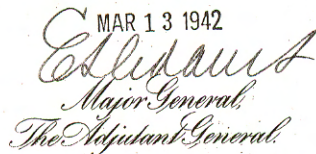 MAR 13 1942
E S Adams
Major General,
The Adjutant General.